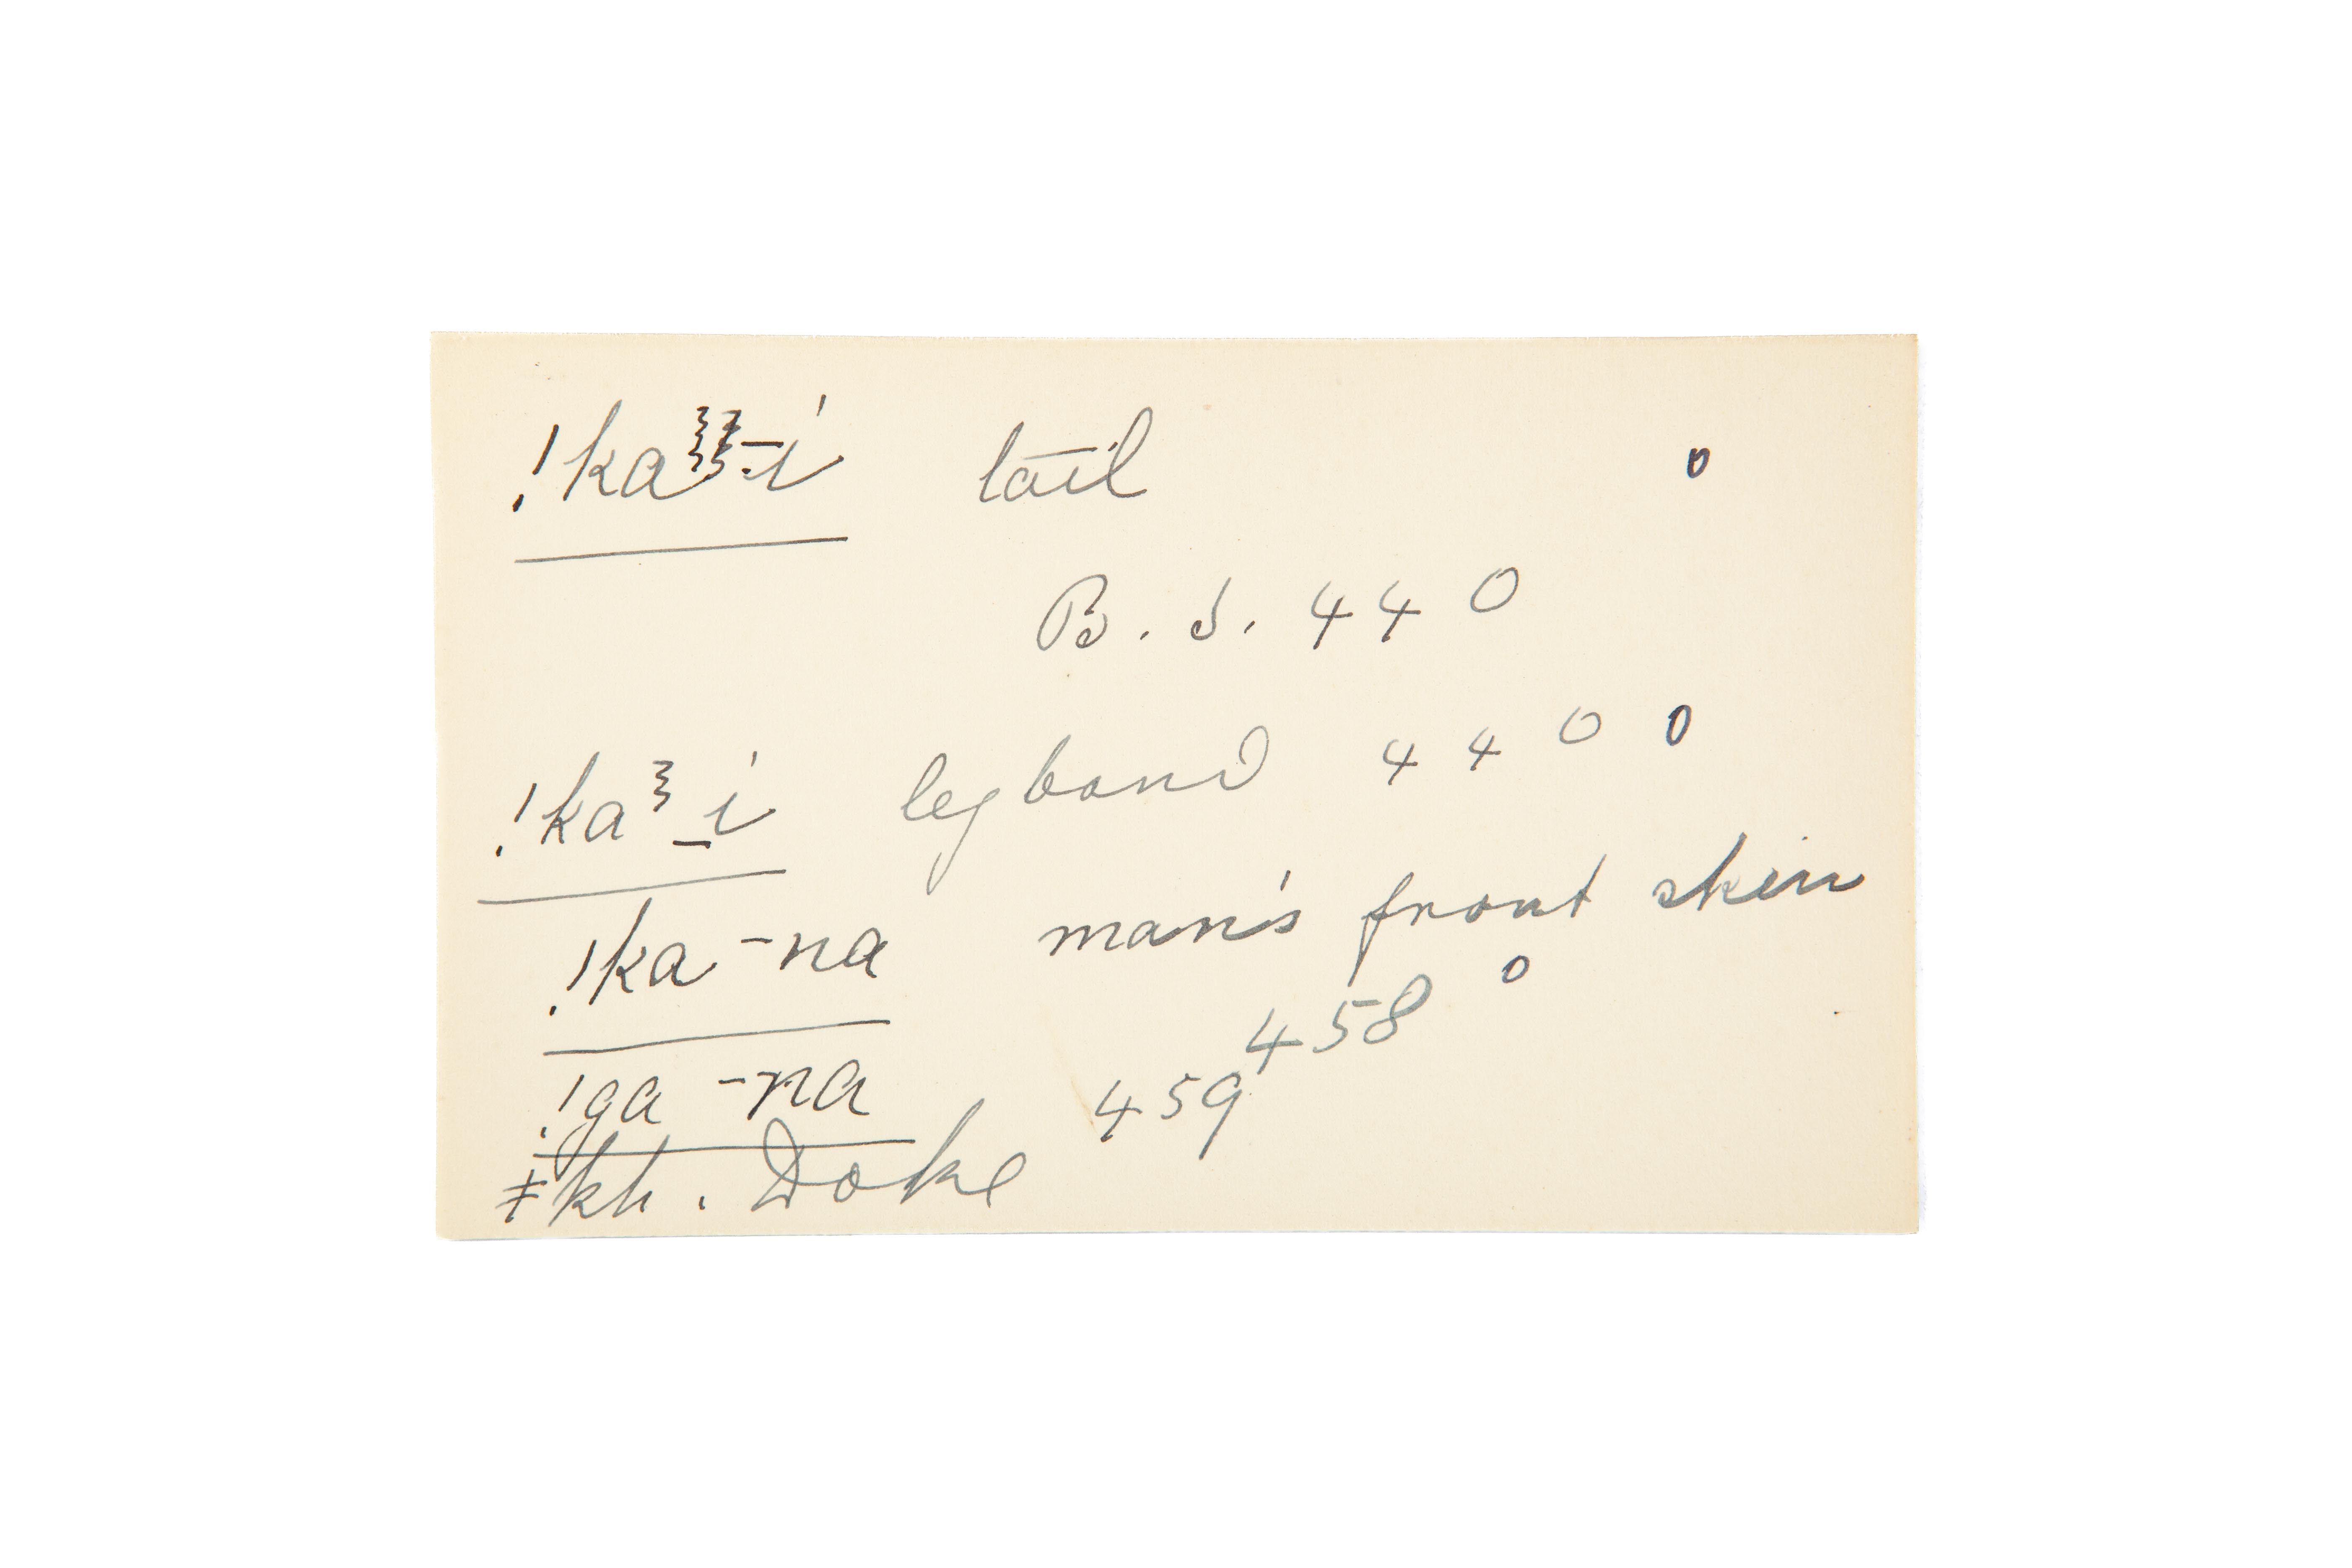 !kaʒ̃-i tail 0
B. S. 440
!kaʒ_i legband 440 0
!ka-na man's front skin
458 0
!ga-na 459
ǂkh. Doke